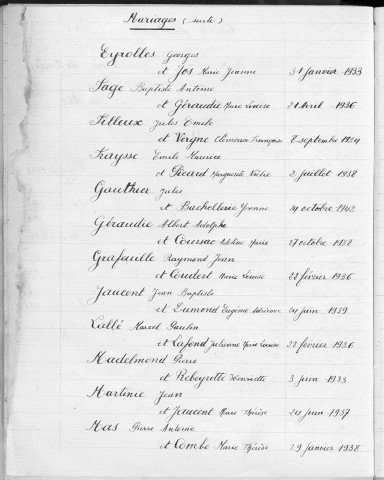 Mariages (suite)
Eyrolles Georges
et Jos Marie Jeanne 31 janvier 1933
Fage Baptiste Antoine
et Géraudie Marie Louise 21 Avril 1936
Filleux Jules Emile
et Vergne Clémence Françoise 8 septembre 1934
Fraysse Emile Maurice
et Picard Marguerite 2 juillet 1938
Gauthier Jules
et Bachellerie Yvonne octobre 1942
Géraudie Albert Adolphe
et Coursac Marie 27 octobre 1938
Grafouille Raymond Jean
et Coudert Marie Louise 22 février 1936
Jaucent Jean Baptiste
et Dumond Eugénie juin 1939
Lallé Marcel
et Lafond Julienne Marie Louise 22 février 1936
Madelmond Pierre
et Rebeyrotte Henriette 3 juin 1933
Martinie Jean
et Jaucent Marie Thérèse 24 juin 1937
Mas Pierre Antoine
et Combe Marie Thérèse 29 janvier 1938